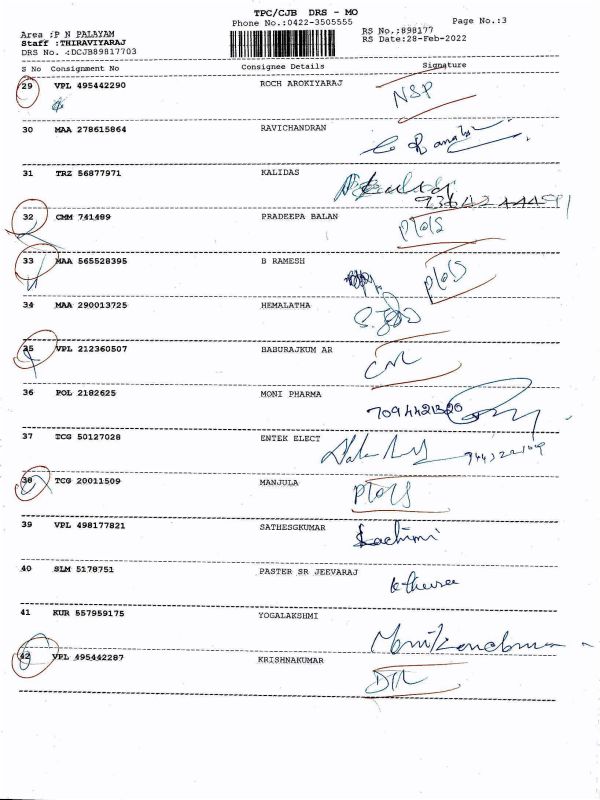 TPC/CJB DRS - MO
Phone No.:0422-3505555
Page No.:3
Area :P N PALAYAM
Staff :THIRAVIYARAJ
DRS No. :DCJB89817703
RS No.:898177
RS Date:28-Feb-2022
S No Consignment No Consignee Details Signature
29 VPL 495442290 ROCH AROKIYARAJ NSP
30 MAA 278615864 RAVICHANDRAN
31 TRZ 56877971 KALIDAS
32 CMM 741489 PRADEEPA BALAN
33 MAA 565528395 B RAMESH
34 MAA 290013725 HEMALATHA
35 VPL 212360507 BABURAJKUM AR
36 POL 2182625 MONI PHARMA
37 TCG 50127028 ENTEK ELECT
38 TCG 20011509 MANJULA
39 VPL 498177821 SATHESGKUMAR
40 SLM 5178751 PASTER SR JEEVARAJ
41 KUR 557959175 YOGALAKSHMI
42 VPL 495442287 KRISHNAKUMAR